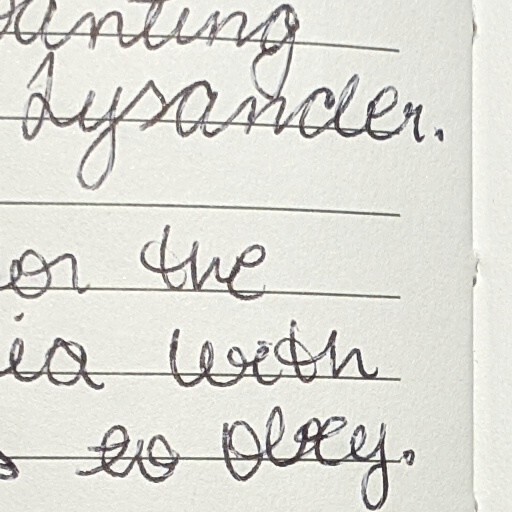 unting
Lysander.
or the
ia with
to obey.